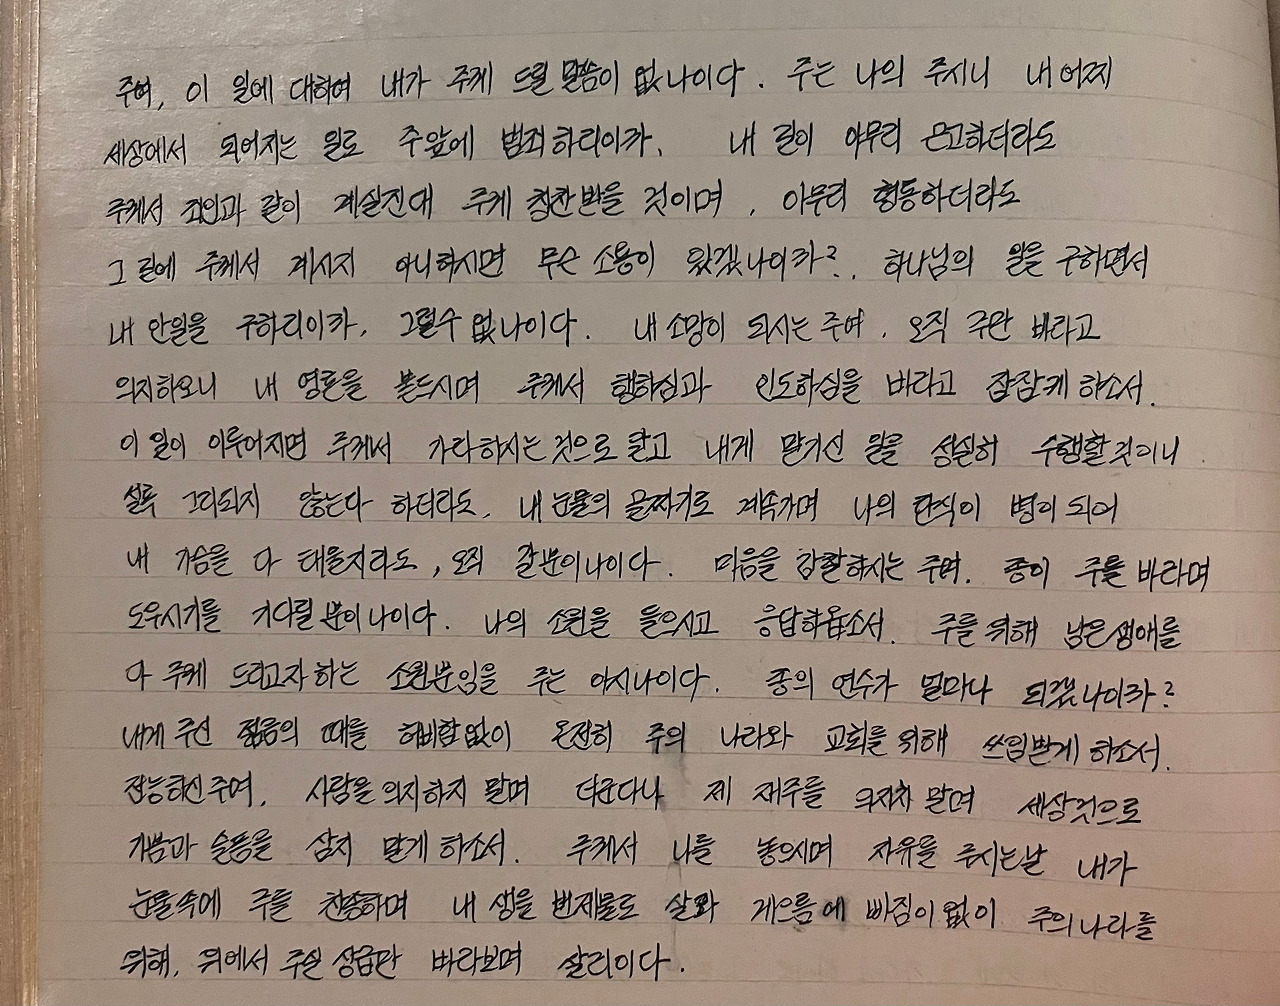 주여, 이 일에 대하여 내가 주께 드릴 말씀이 없나이다. 주는 나의 주시니 내 어찌
세상에서 되어지는 일로 주앞에 범죄하리이까. 내 길이 아무리 곤고하더라도
주께서 죄인과 같이 계실진대 주께 칭찬받을 것이며, 아무리 형통하더라도
그 길에 주께서 계시지 아니하시면 무슨 소용이 있겠나이까?. 하나님의 일을 구하면서
내 안일을 구하리이까. 그럴수 없나이다. 내 소망이 되시는 주여. 오직 주만 바라고
의지하오니 내 영혼을 붙드시며 주께서 행하심과 인도하심을 바라고 잠잠케 하소서.
이 일이 이루어지면 주께서 가라하시는 것으로 알고 내게 맡기신 일을 성실히 수행할것이니
설혹 그리되지 않는다 하더라도, 내 눈물의 골짜기로 계속가며 나의 탄식이 병이 되어
내 가슴을 다 태울지라도, 오직 갈분이나이다. 마음을 감찰하시는 주여. 종이 주를 바라며
도우시기를 기다릴 뿐이나이다. 나의 소원을 들으시고 응답하옵소서. 주를 위해 남은생애를
다 주께 드리고자 하는 소원뿐임을 주는 아시나이다. 종의 연수가 얼마나 되겠나이까?
내게 주신 젊음의 때를 허비함없이 온전히 주의 나라와 교회를 위해 쓰임받게 하소서.
전능하신 주여. 사람을 의지하지 말며 더군다나 제 재주를 의지치 말며 세상것으로
기쁨과 슬픔을 삼지 말게 하소서. 주께서 나를 놓으시며 자유를 주시는날 내가
눈물속에 주를 찬송하며 내 생을 번제물로 살라 게으름에 빠짐이 없이 주의 나라를
위해, 위에서 주실 상급만 바라보며 살리이다.